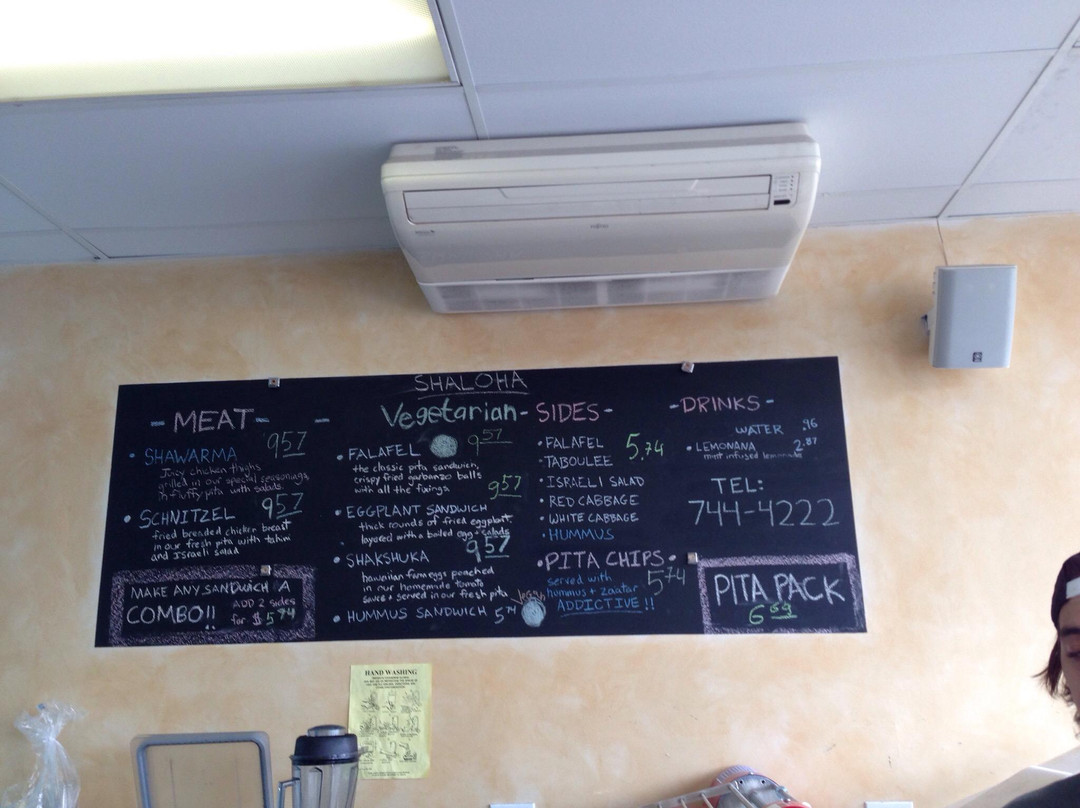 FUJITSU
SHALOHA
- MEAT -
• SHAWARMA 957
Juicy chicken thighs
grilled in our special seasonings
in fluffy pita with salads
• SCHNITZEL 957
fried breaded chicken breast
in our fresh pita with tahini
and Israeli salad
MAKE ANY SANDWICH A
COMBO!! ADD 2 sides
for $ 574
- Vegetarian -
• FALAFEL 957
the classic pita sandwich,
crispy fried garbanzo balls
with all the fixings
957
• EGGPLANT SANDWICH
thick rounds of fried eggplant
layered with a boiled egg + salads
• SHAKSHUKA 957
hawaiian farm eggs poached
in our homemade tomato
sauce + served in our fresh pita
• HUMMUS SANDWICH 574 Vegan
SIDES -
• FALAFEL
• TABOULEE 5.74
• ISRAELI SALAD
• RED CABBAGE
• WHITE CABBAGE
• HUMMUS
• PITA CHIPS •
served with 574
hummus + Zaatar
ADDICTIVE !!
- DRINKS -
WATER .96
• LEMONANA 2.87
mint infused lemonade
TEL:
744-4222
PITA PACK
669
HAND WASHING